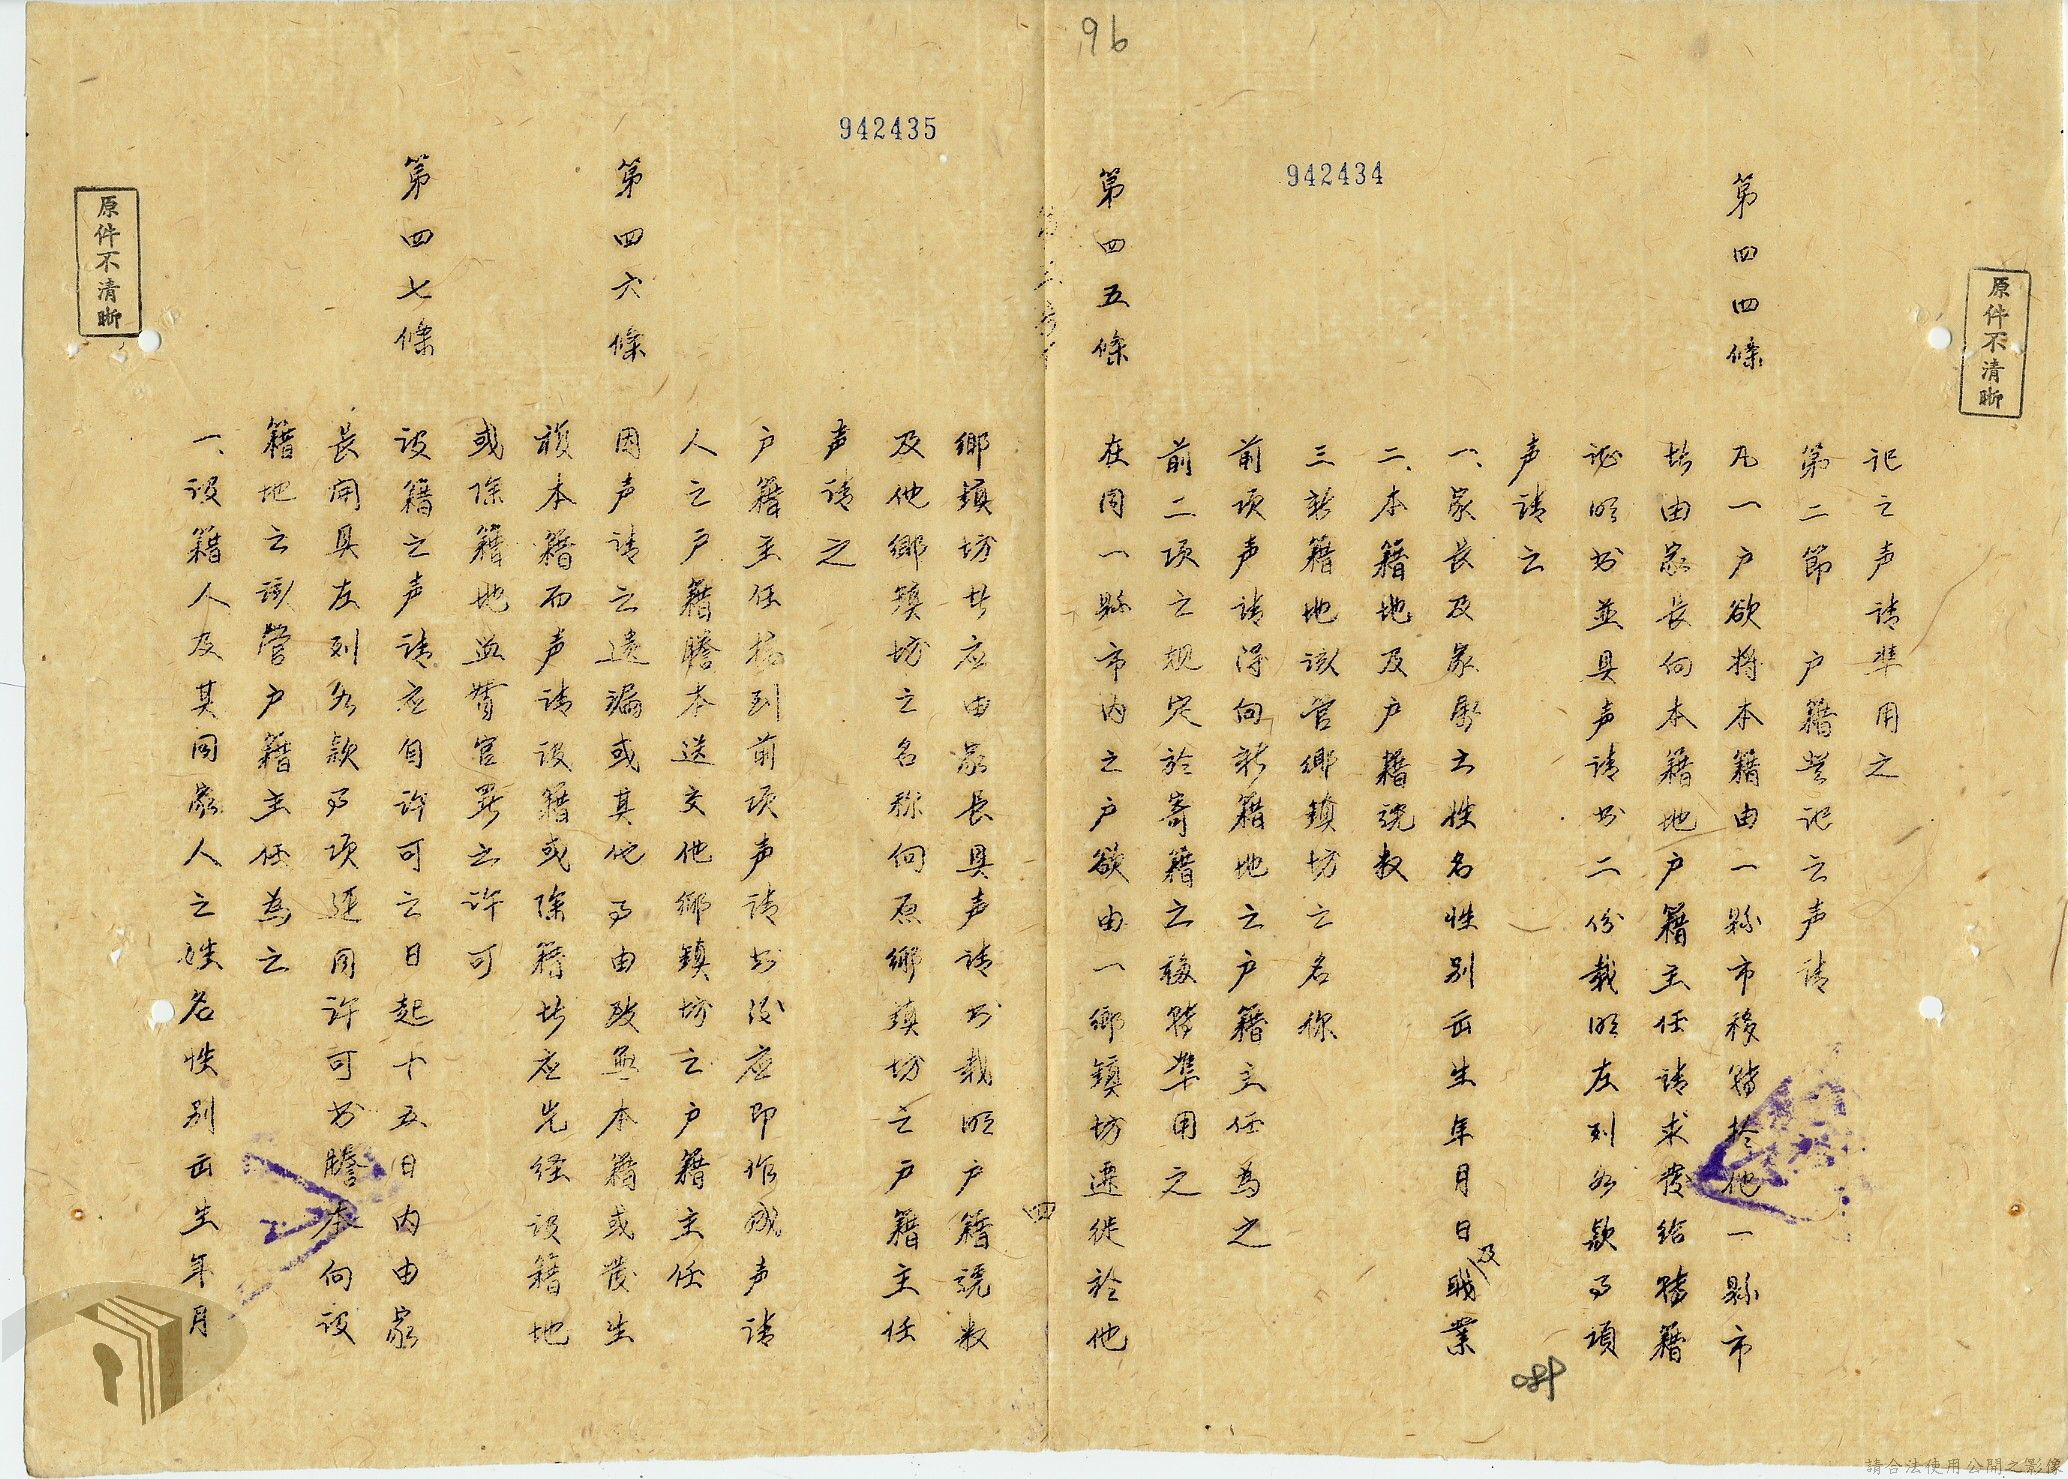 96
942434
原件不清晰
記之声请準用之
第二節 户籍登记之声请
第四四條 凡一户欲将本籍由一縣市移转於他一縣市
者由家長向本籍地户籍主任请求發给转籍
证明书並具声请书二份載明左列各款事項
声请之
一、家長及家屬之姓名性别出生年月日及職業
二、本籍地及户籍號数
三新籍地該管鄉鎮坊之名称
前项声请得向新籍地之户籍主任為之
前二项之规定於寄籍之移转準用之
第四五條 在同一縣市内之户欲由一鄉鎮坊遷徙於他
四
942435
鄉鎮坊者应由家長具声请书載明户籍號数
及他鄉鎮坊之名称向原鄉鎮坊之户籍主任
声请之
户籍主任接到前项声请书後应即作成声请
人之户籍謄本送交他鄉鎮坊之户籍主任
第四六條 因声请之遗漏或其他事由致無本籍或發生
複本籍而声请設籍或除籍者应先经設籍地
或除籍地监督官署之许可
第四七條 設籍之声请应自许可之日起十五日内由家
長開具左列各款事项连同许可书謄本向設
籍地之該管户籍主任為之
一、設籍人及其同家人之姓名性别出生年月
原件不清晰
084
請合法使用公開之影像